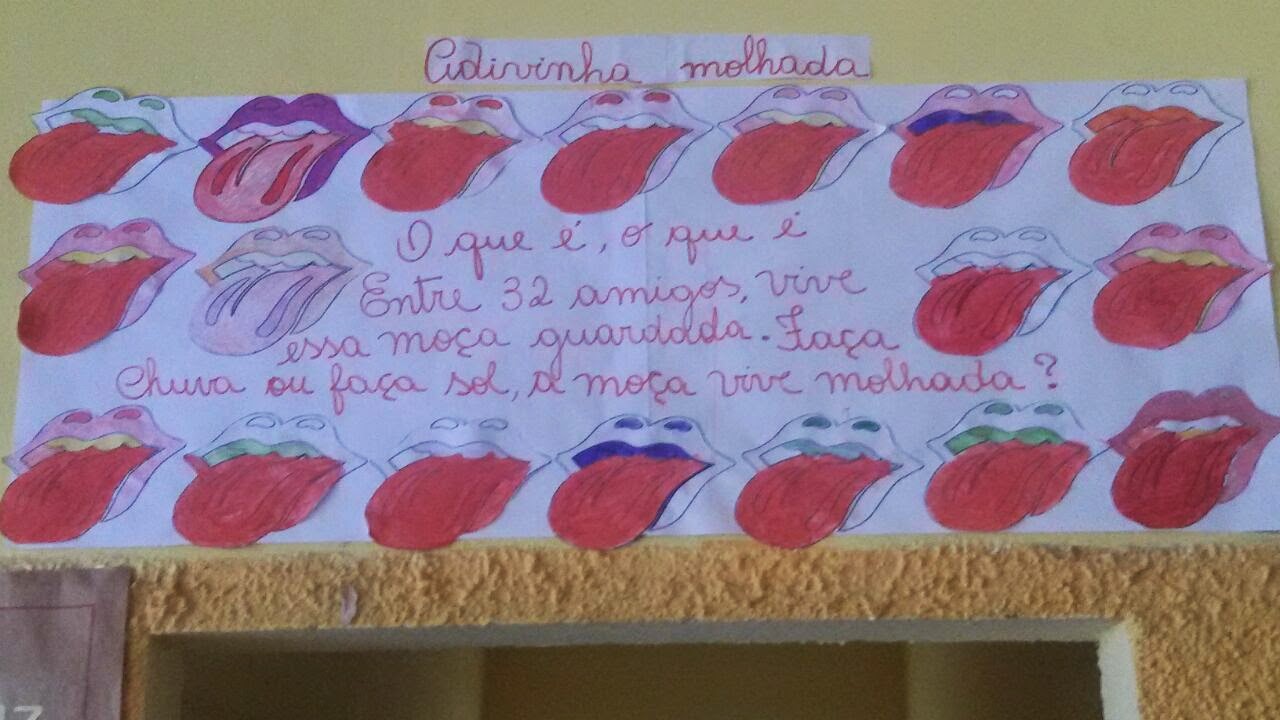 Adivinha molhada
O que é, o que é
Entre 32 amigos, vive
essa moça guardada. Faça
Chuva ou faça sol, a moça vive molhada?